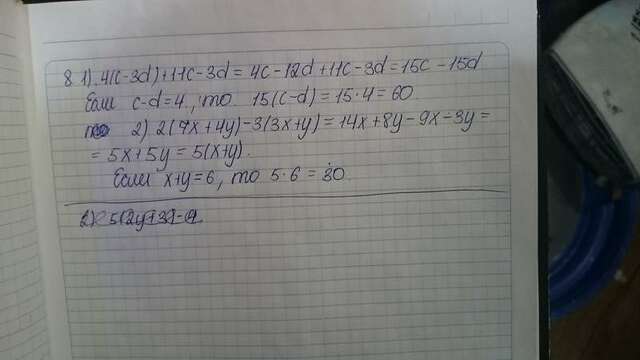 8 1) 4(c-3d)+11c-3d=4c-12d+11c-3d=15c-15d
Если c-d=4, то 15(c-d)=15·4=60
2) 2(7x+4y)-3(3x+y)=14x+8y-9x-3y=
=5x+5y=5(x+y).
Если x+y=6, то 5·6=30.